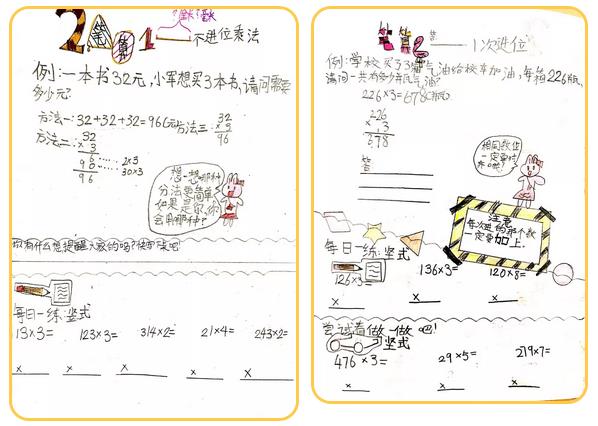 2 笔算 1 不进位乘法
例:一本书32元,小军想买3本书,请问需要
多少元?
方法一:32+32+32=96(元)
方法二: 32
×3
6 …… 2×3
90 …… 30×3
96
方法三: 32
×3
96
想一想哪种
方法更简单
如果是你,你
会用哪种?
你有什么想提醒大家的吗?快写一写吧
每日一练:竖式
13×3= 123×3= 314×2= 21×4= 243×2=
× × × × ×
笔算2 1次进位
例:学校买了3箱汽油给校车加油,每箱226瓶,
请问一共有多少瓶汽油?
226×3=678(瓶)
226
×3
678
答
相同数位
一定要对
齐哦!
注意
每次进的那个数
一定要加上.
每日一练:竖式
126×3= 136×3= 120×8=
× × ×
尝试着做一做吧!
竖式
476×3= 29×5= 219×7=
× × ×